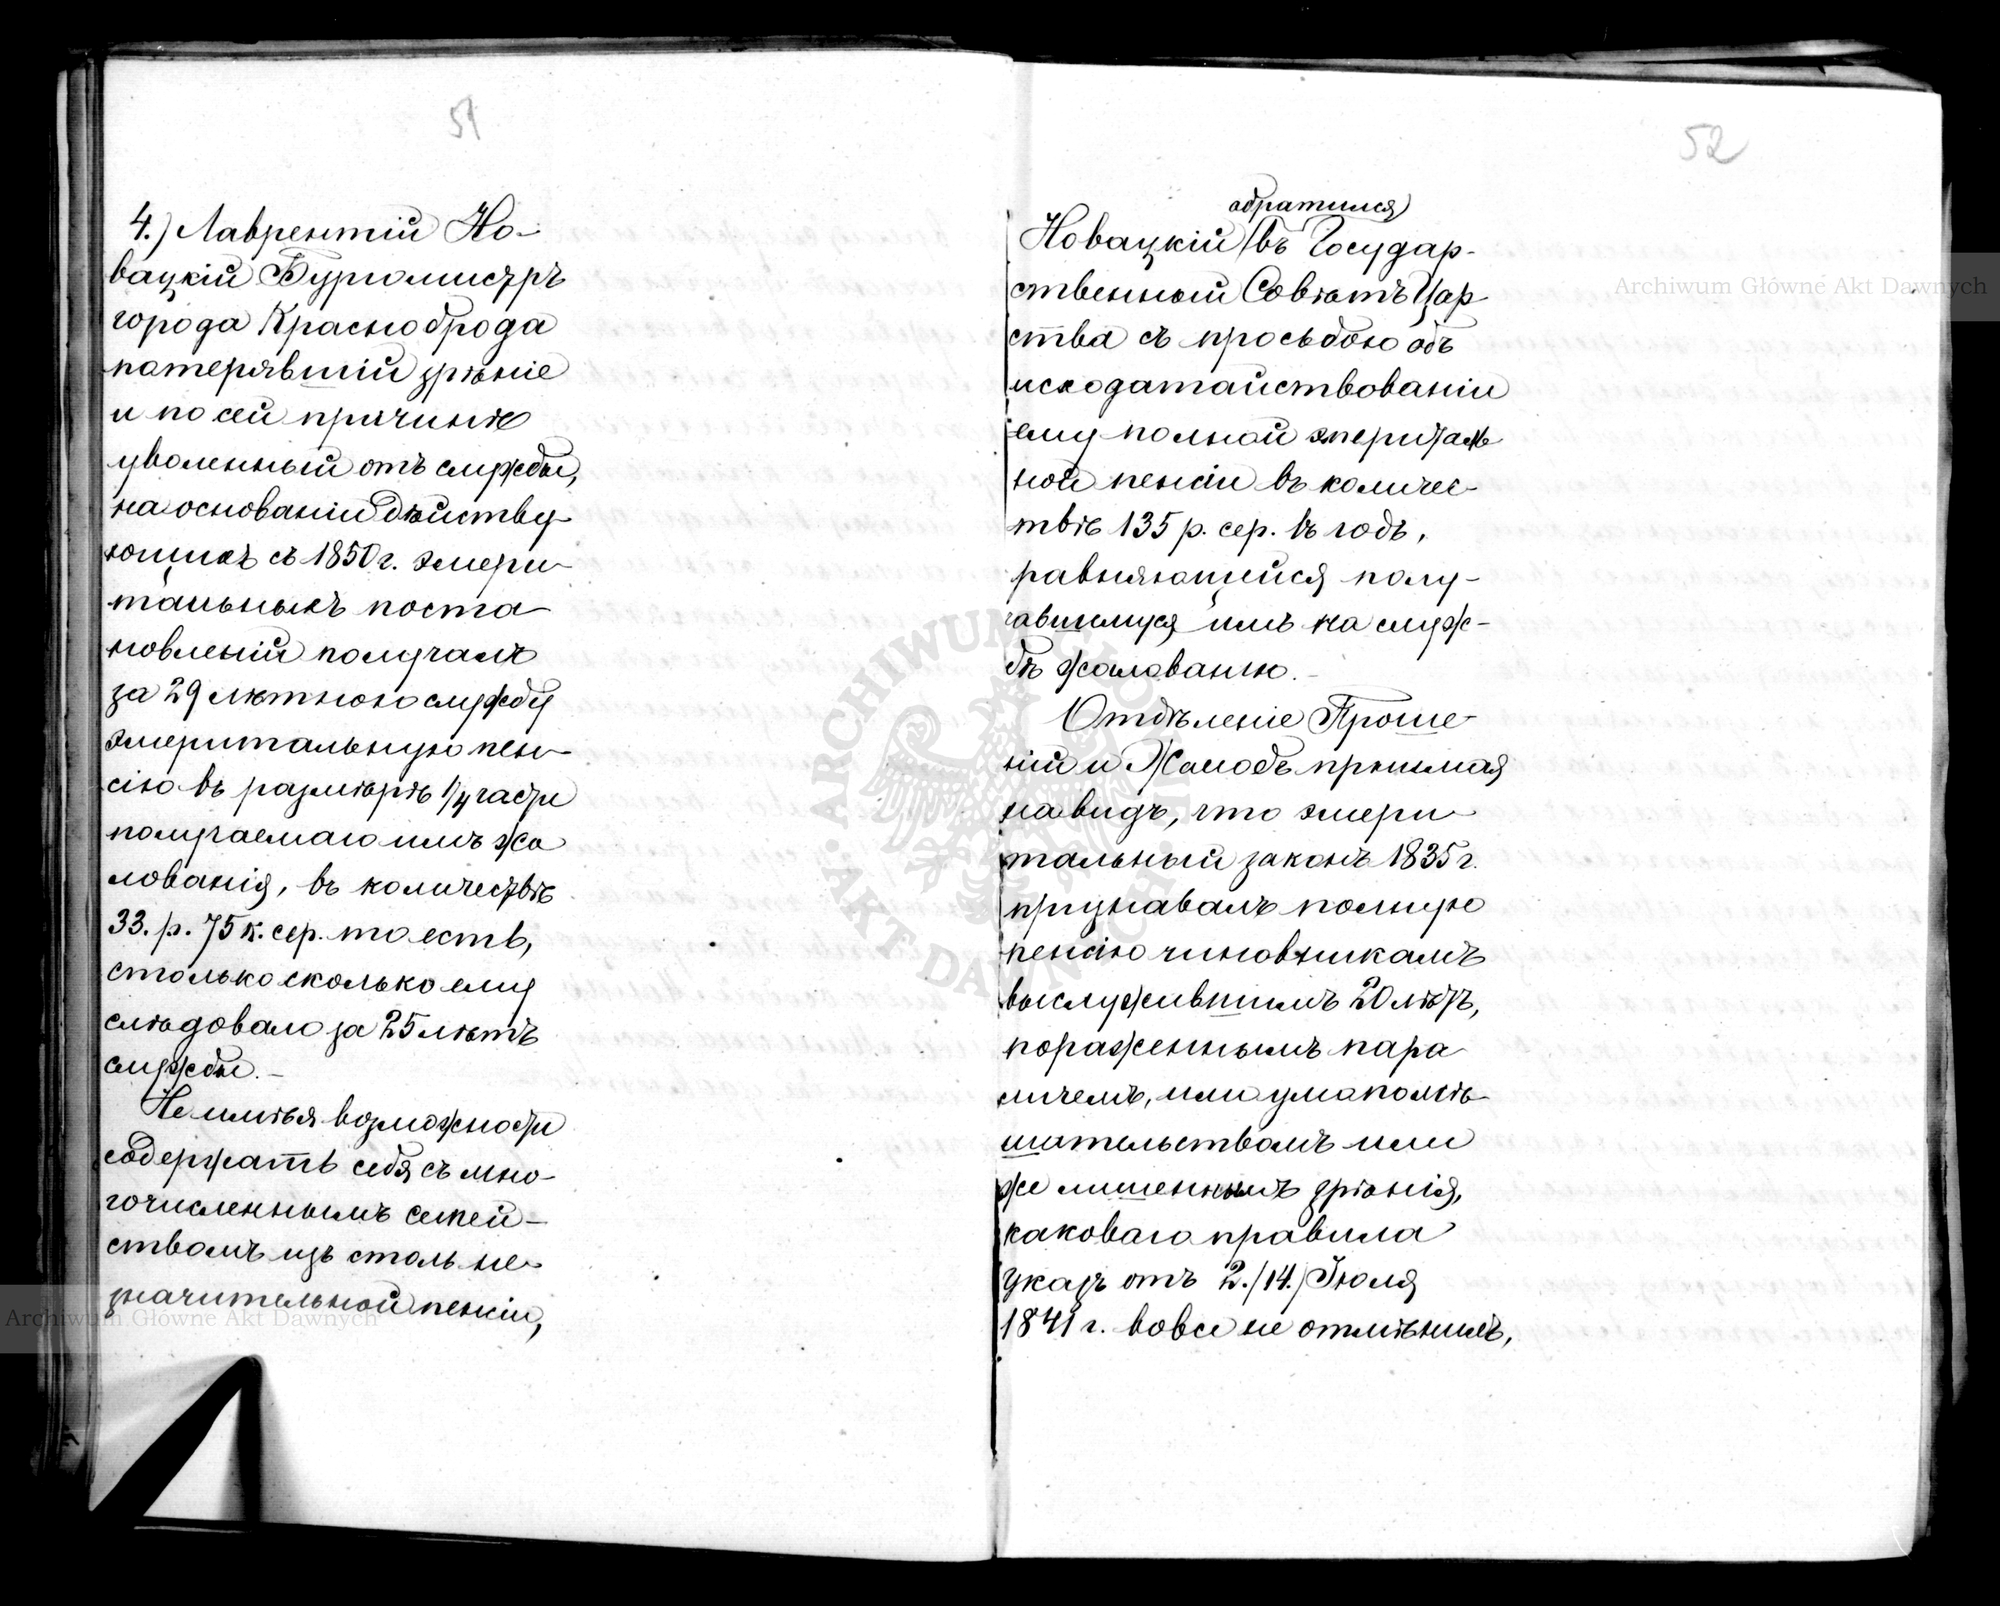 51
4.) Лаврентій Но-
вацкій Бургомистръ
города Красноброда
потерявшій зрѣніе
и по сей причинѣ
уволенный отъ службы,
на основаніи дѣйству-
ющихъ съ 1850 г. эмери-
тальныхъ поста-
новленій получалъ
за 29 лѣтнюю службу
эмеритальную пен-
сію въ размѣрѣ 1/4 части
получаемаго имъ жа
лованія, въ количествѣ
33. р. 75 к. сер. то есть,
столько сколько ему
слѣдовало за 25 лѣтъ
службы. –
Не имѣя возможности
содержать себя съ мно-
гочисленнымъ семей-
ствомъ изъ столь не-
значительной пенсіи,
52
обратился
Новацкій въ Государ-
ственный Совѣтъ Цар
ства съ просьбою объ
исходатайствованіи
ему полной эмериталь
ной пенсіи въ количес-
твѣ 135 р. сер. въ годъ,
равняющейся полу-
чавшемуся имъ на служ-
бѣ жалованію. –
Отдѣленіе Проше-
ній и Жалобъ принимая
на видъ, что эмери-
тальный законъ 1835 г.
признавалъ полную
пенсію чиновникамъ
выслужившимъ 20 лѣтъ,
пораженнымъ пара
личемъ, или умапомѣ-
шательствомъ или
же лишеннымъ зрѣнія,
каковаго правила
указъ отъ 2./14.) Іюля
1841 г. вовсе не отмѣнилъ,
Archiwum Główne Akt Dawnych
Archiwum Główne Akt Dawnych
ARCHIWUM GŁÓWNE AKT DAWNYCH